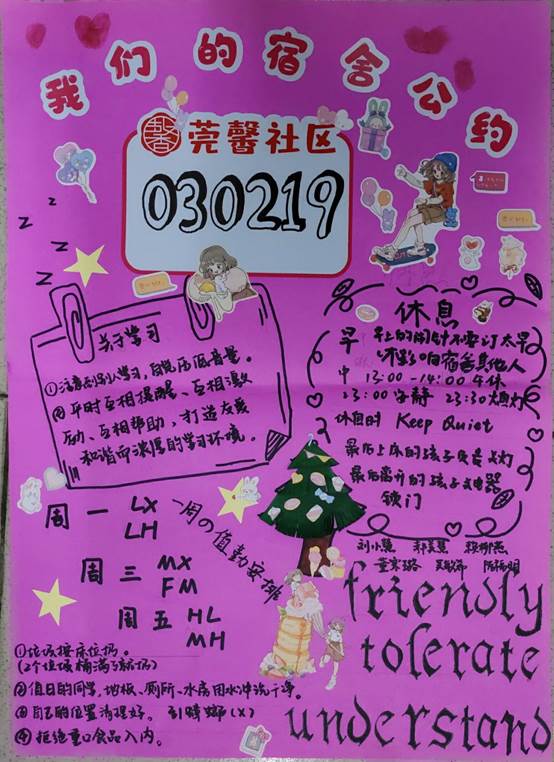 我们的宿舍公约
莞馨社区
030219
z
z
z
z
关于学习
①注意别影响别人学习，自觉压低音量。
②平时互相提醒、互相激
励、互相帮助，打造友爱
和谐而浓厚的学习环境。
休息
早 早上的闹钟不要订太早
坏影响宿舍其他人
中 13:00-14:00 午休
23:00 安静 23:30 熄灯
休息时 Keep Quiet
最后上床的孩子负责关灯
最后离开的孩子关电器
锁门
一周の值勤安排
周一 LX
LH
周三 MX
FM
周五 HL
MH
①垃圾按床位扔。
(2个垃圾桶满了就扔)
②值日的同学，地板、厕所、水房用水冲洗干净。
③自己的位置清理好。引蟑螂(X)
④拒绝重口食品入内。
friendly
tolerate
understand